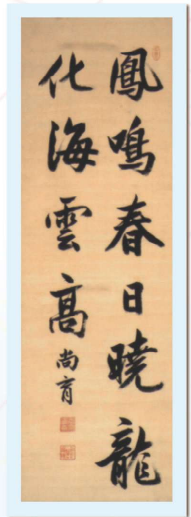 鳳鳴春日曉龍
化海雲高
尚育